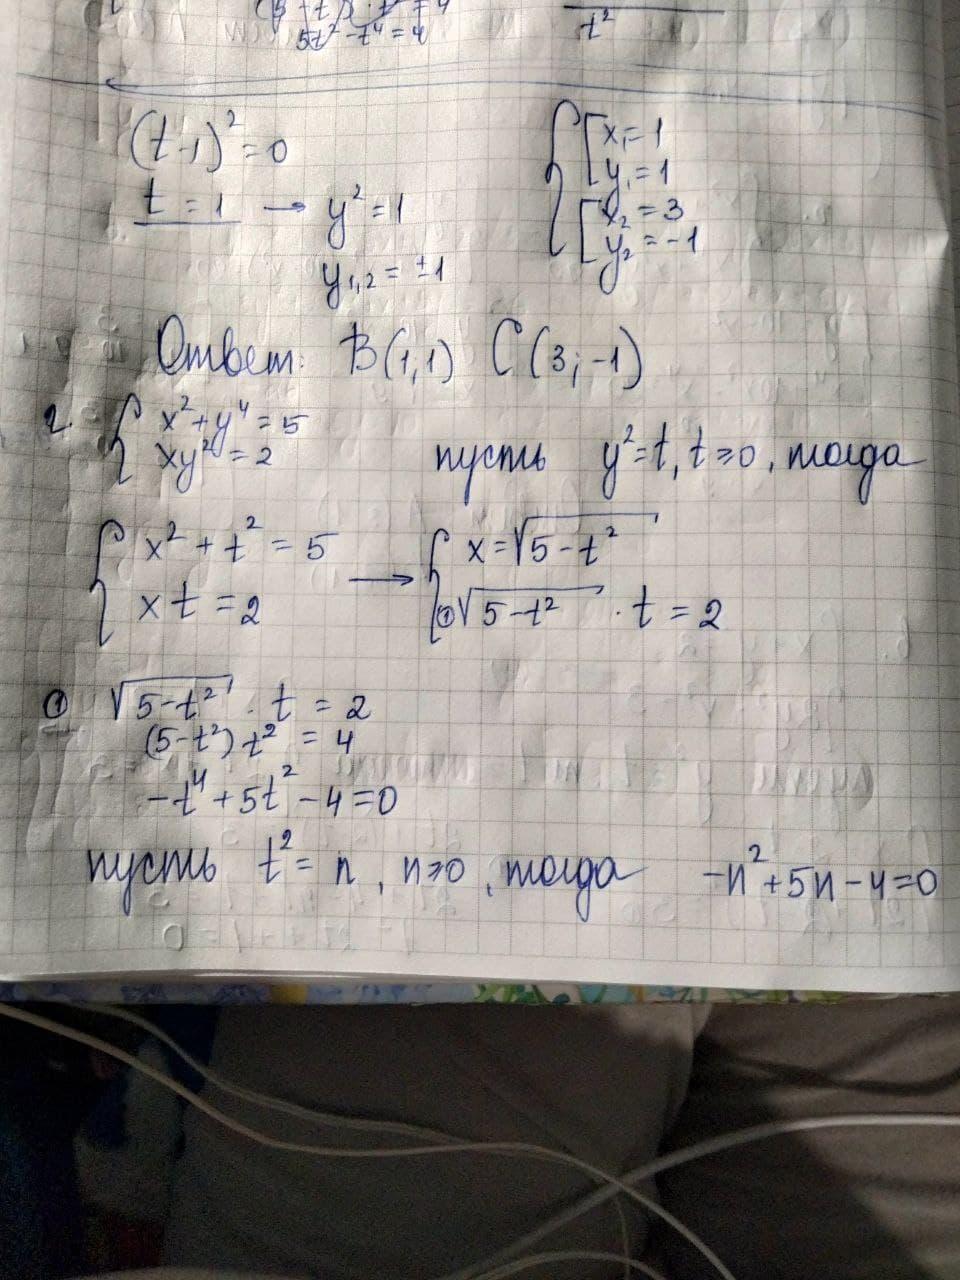 5t² - t⁴ = 4
t²
(t-1)² = 0
t = 1 → y² = 1
y₁,₂ = ±1
{ [ x₁ = 1
y₁ = 1
[ x₂ = 3
y₂ = -1
Ответ: B(1,1) C(3;-1)
2. { x² + y⁴ = 5
xy² = 2
пусть y² = t, t ≥ 0, тогда
{ x² + t² = 5
xt = 2
→ { x = √(5 - t²)
① √(5-t²) · t = 2
① √(5-t²) · t = 2
(5-t²) t² = 4
-t⁴ + 5t² - 4 = 0
пусть t² = n, n ≥ 0, тогда -n² + 5n - 4 = 0